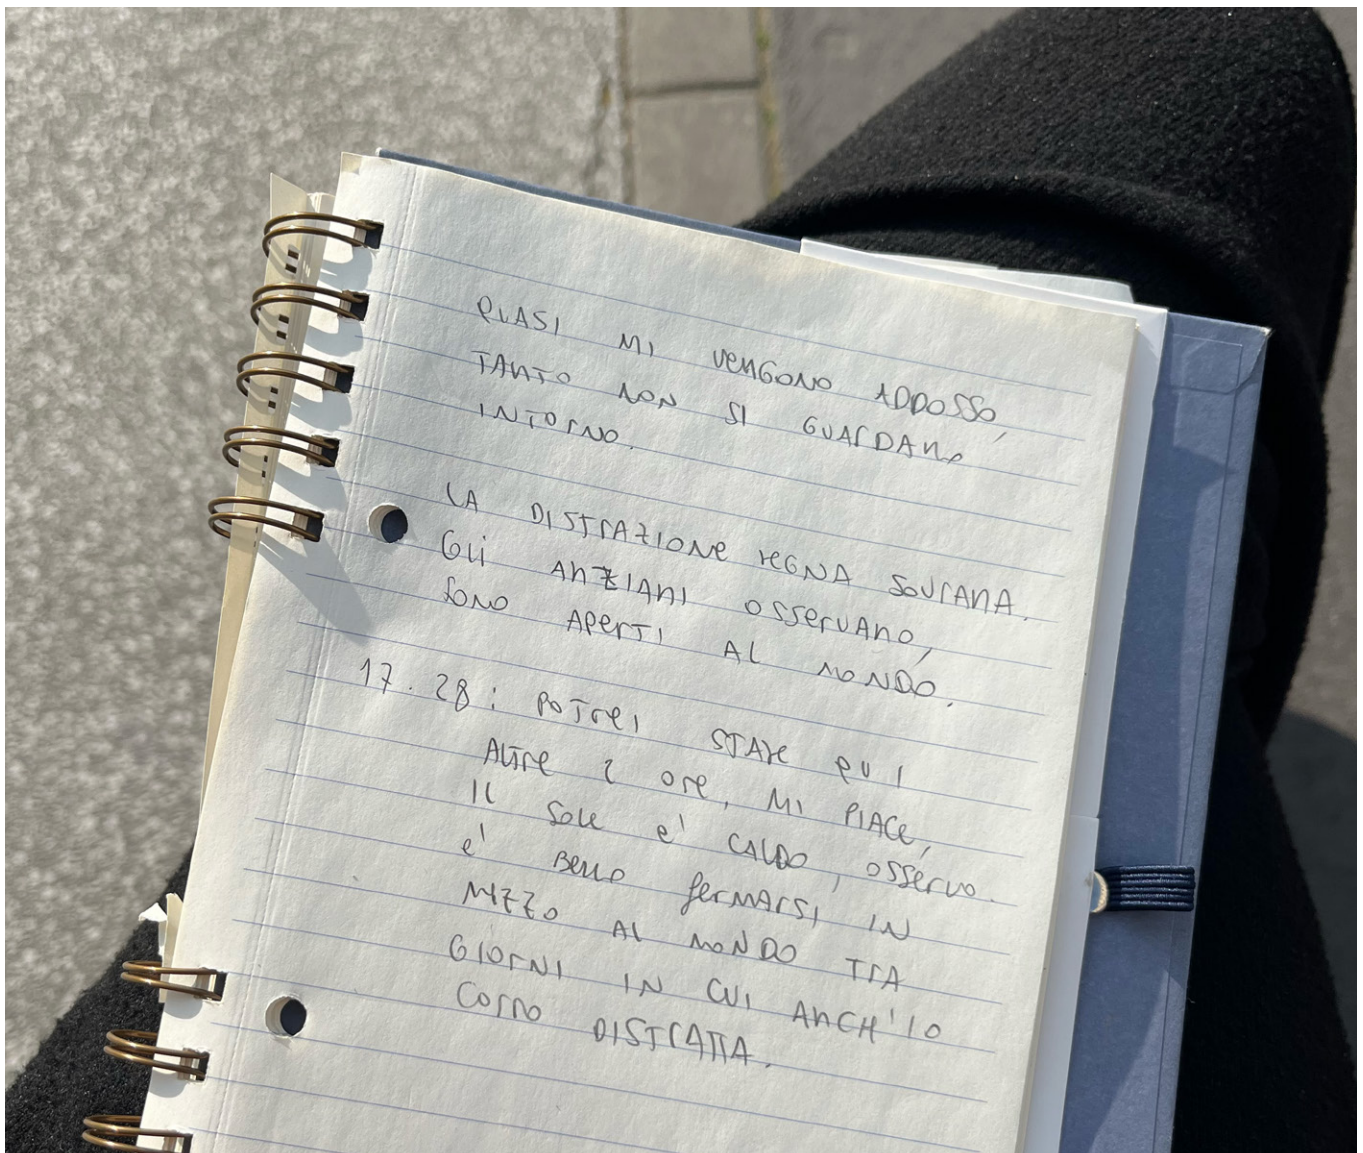 QUASI MI VENGONO ADDOSSO,
TANTO NON SI GUARDANO
INTORNO.
LA DISTRAZIONE REGNA SOVRANA.
Gli ANZIANI OSSERVANO,
SONO APERTI AL MONDO.
17.28: POTREI STARE QUI
ALTRE 2 ORE, MI PIACE,
Il SOLE E' CALDO, OSSERVO.
E' BELLO fERMARSI IN
MEZZO AL MONDO TRA
GIORNI IN CUI ANCH'IO
CORRO DISTRATTA.